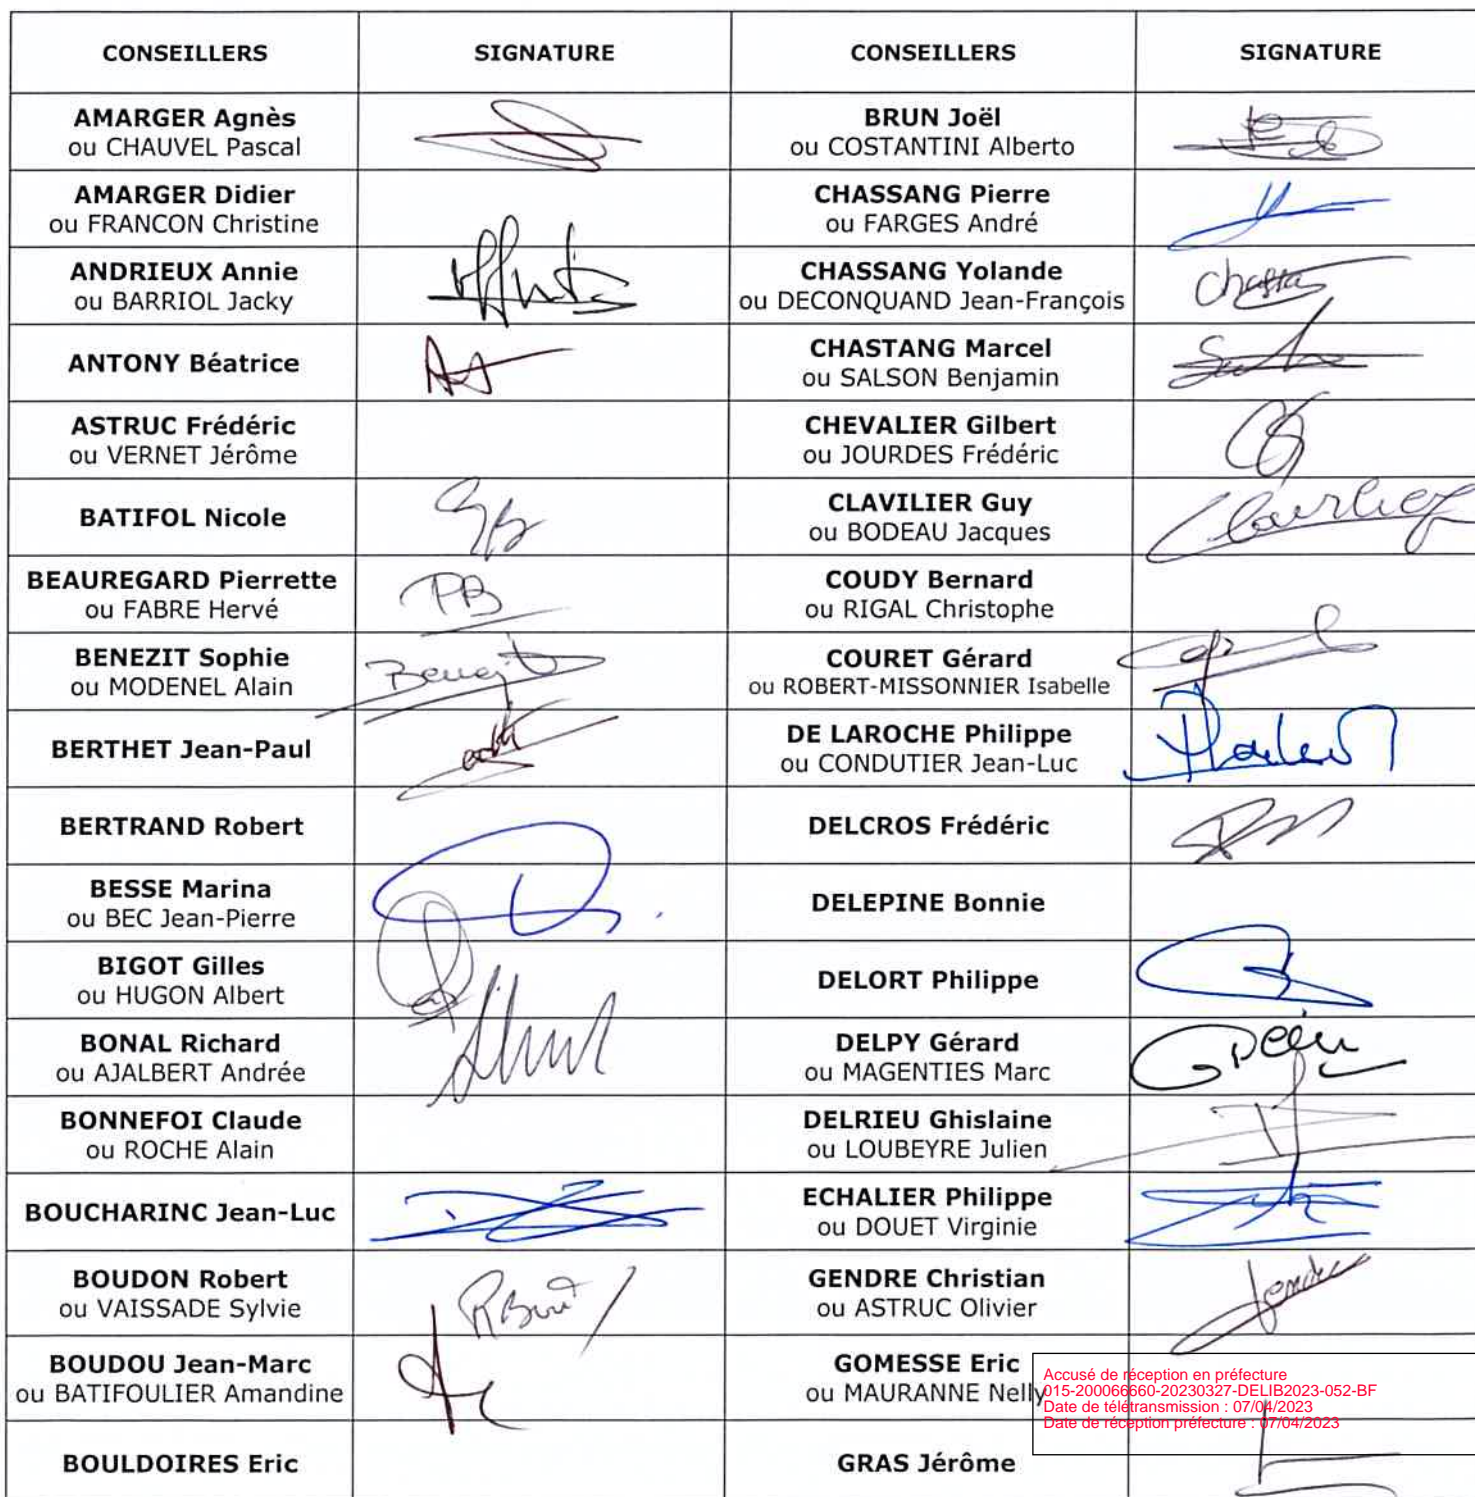 CONSEILLERS SIGNATURE CONSEILLERS SIGNATURE
AMARGER Agnès
ou CHAUVEL Pascal
BRUN Joël
ou COSTANTINI Alberto
AMARGER Didier
ou FRANCON Christine
CHASSANG Pierre
ou FARGES André
ANDRIEUX Annie
ou BARRIOL Jacky
CHASSANG Yolande
ou DECONQUAND Jean-François
ANTONY Béatrice
CHASTANG Marcel
ou SALSON Benjamin
ASTRUC Frédéric
ou VERNET Jérôme
CHEVALIER Gilbert
ou JOURDES Frédéric
BATIFOL Nicole
CLAVILIER Guy
ou BODEAU Jacques
BEAUREGARD Pierrette
ou FABRE Hervé
PB
COUDY Bernard
ou RIGAL Christophe
BENEZIT Sophie
ou MODENEL Alain
COURET Gérard
ou ROBERT-MISSONNIER Isabelle
BERTHET Jean-Paul
DE LAROCHE Philippe
ou CONDUTIER Jean-Luc
BERTRAND Robert
DELCROS Frédéric
BESSE Marina
ou BEC Jean-Pierre
DELEPINE Bonnie
BIGOT Gilles
ou HUGON Albert
DELORT Philippe
BONAL Richard
ou AJALBERT Andrée
DELPY Gérard
ou MAGENTIES Marc
BONNEFOI Claude
ou ROCHE Alain
DELRIEU Ghislaine
ou LOUBEYRE Julien
BOUCHARINC Jean-Luc
ECHALIER Philippe
ou DOUET Virginie
BOUDON Robert
ou VAISSADE Sylvie
GENDRE Christian
ou ASTRUC Olivier
BOUDOU Jean-Marc
ou BATIFOULIER Amandine
GOMESSE Eric
ou MAURANNE Nelly
Accusé de réception en préfecture
015-200066660-20230327-DELIB2023-052-BF
Date de télétransmission : 07/04/2023
Date de réception préfecture : 07/04/2023
BOULDOIRES Eric
GRAS Jérôme